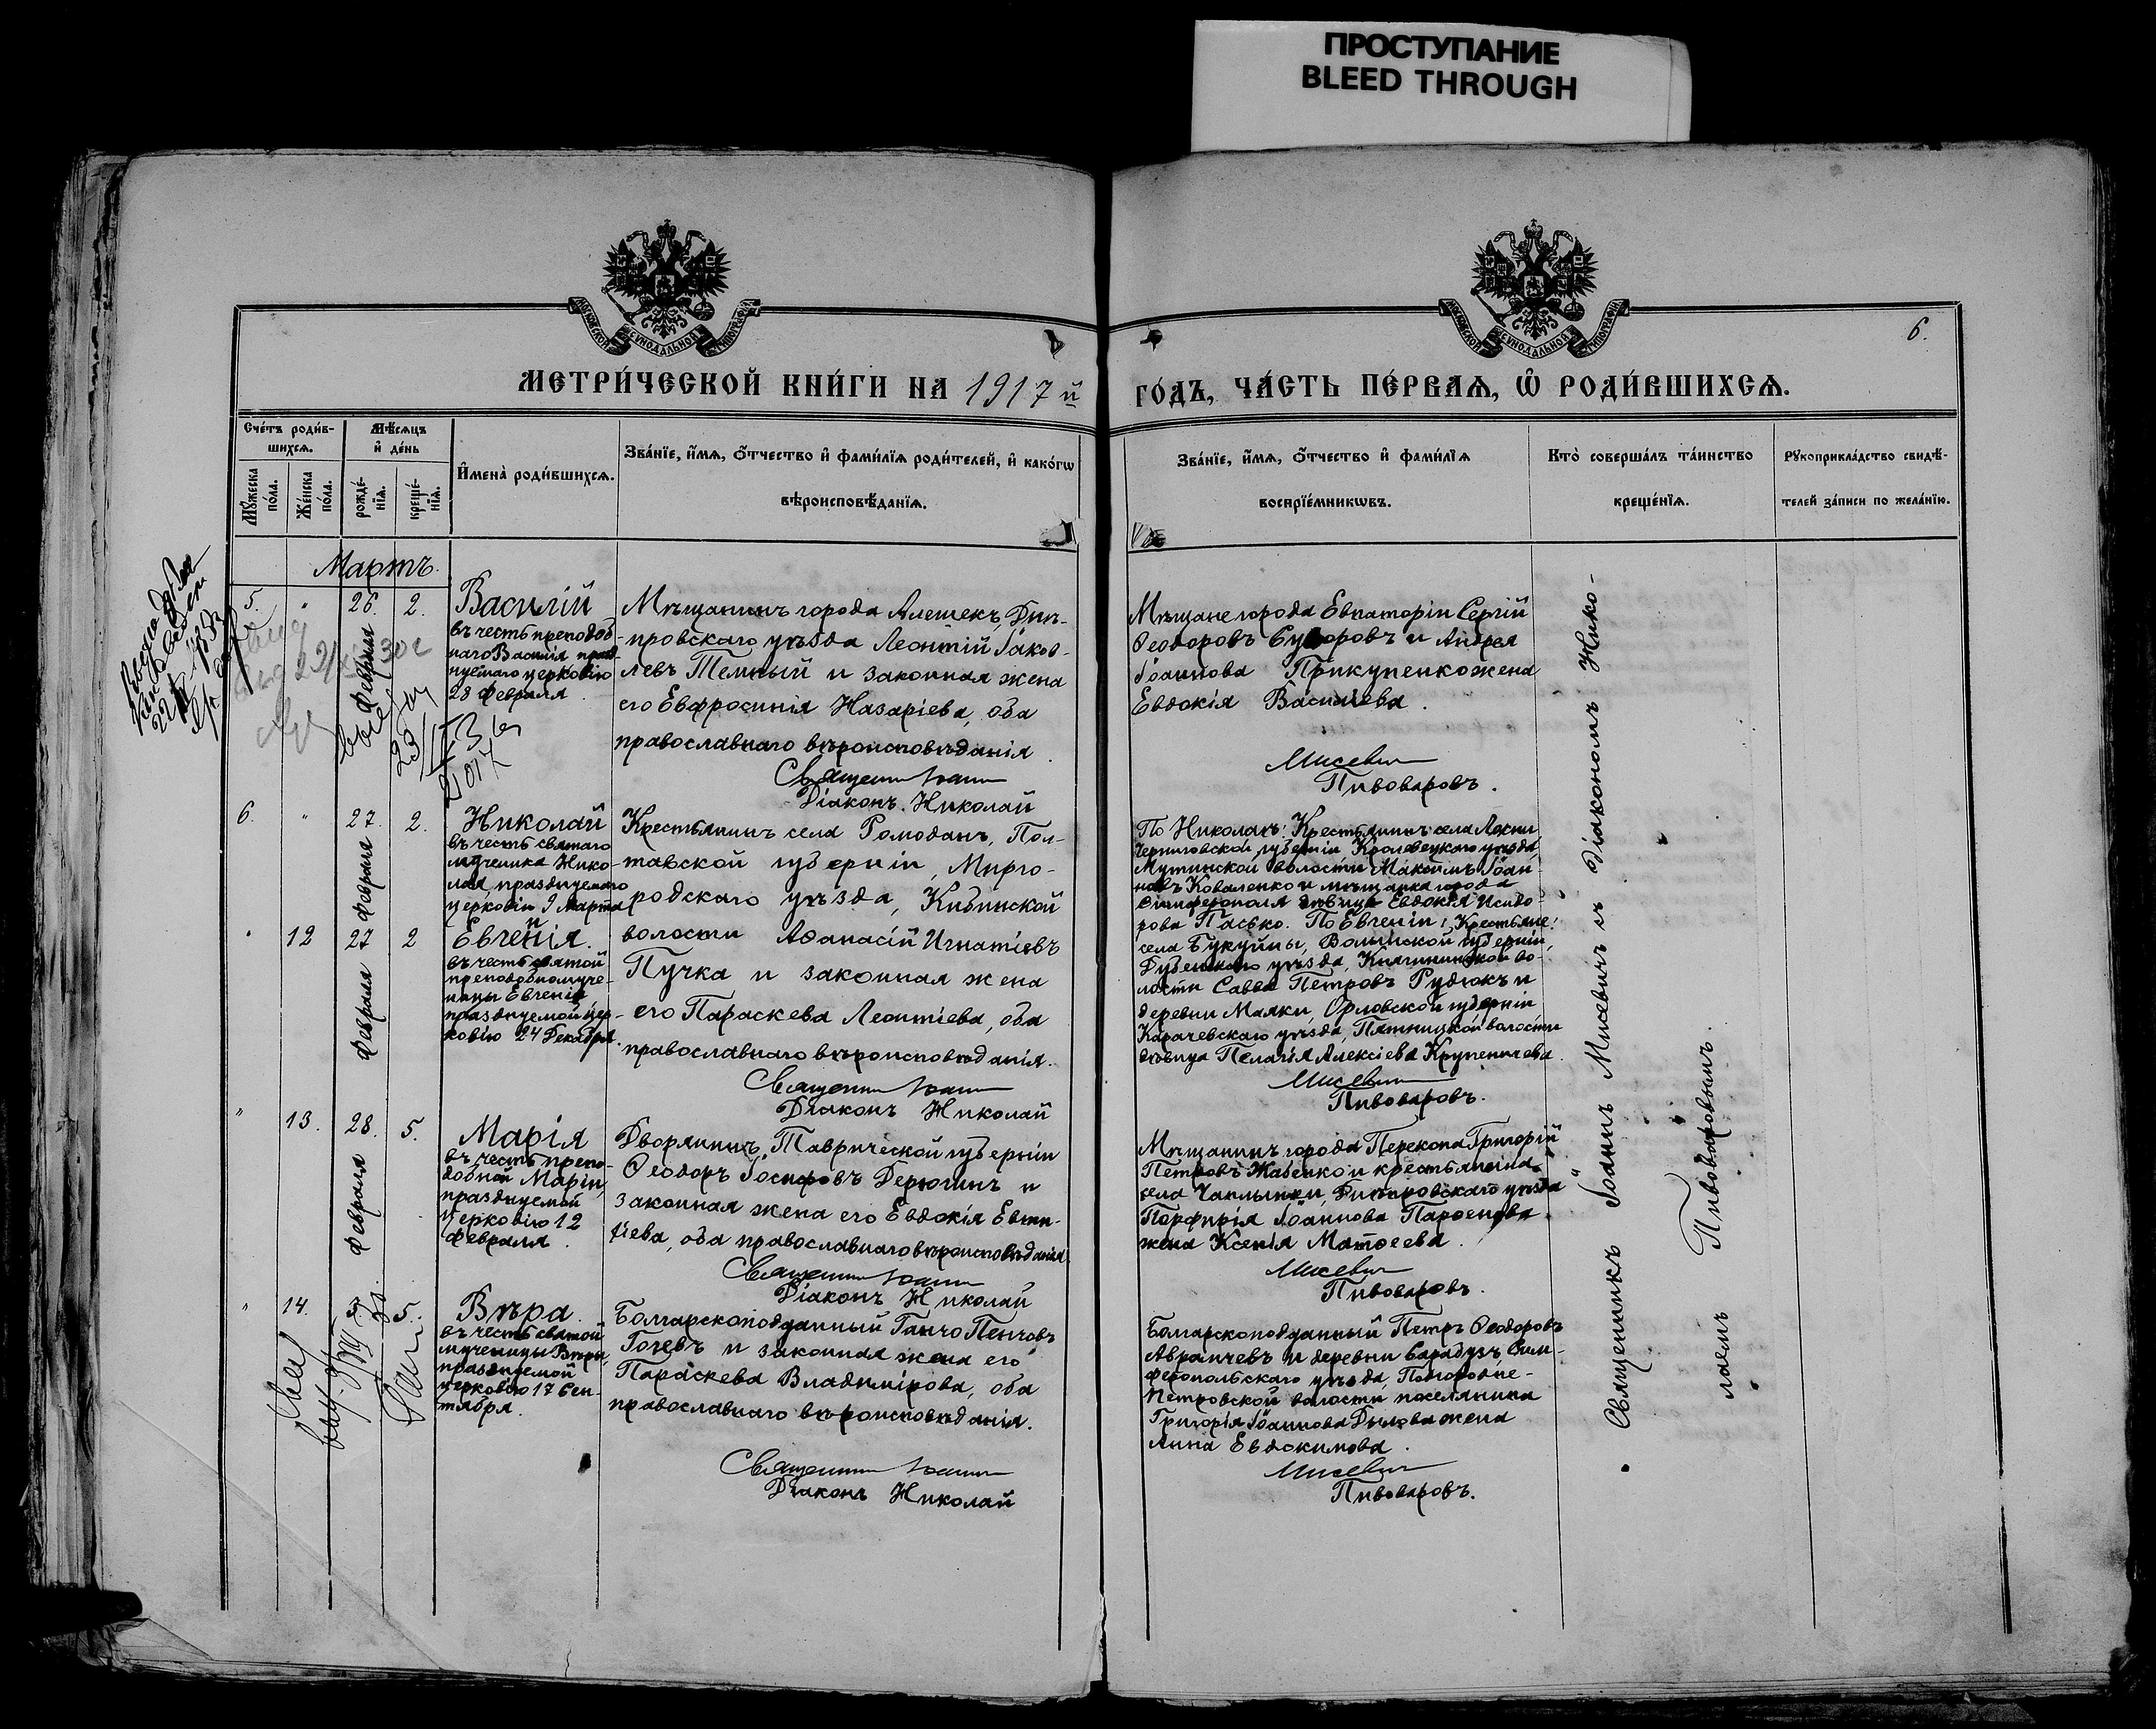 ПРОСТУПАНИЕ
BLEED THROUGH
МОСКОВСКОЙ СѴНОДАЛЬНОЙ ТИПОГРАФІИ
МОСКОВСКОЙ СѴНОДАЛЬНОЙ ТИПОГРАФІИ
6.
МЕТРИ́ЧЕСКОЙ КНИ́ГИ НА 1917й
ГО́ДЪ, ЧА́СТЬ ПЕ́РВАѦ, Ѡ҆ РОДИ́ВШИХСѦ.
Сче́тъ роди́в-
шихсѧ.
Мѣ́сѧцъ
и҆ де́нь
Мꙋ́жеска
по́ла.
Же́нска
по́ла.
рожде́-
нїѧ.
креще́-
нїѧ.
И҆мена̀ роди́вшихсѧ.
Зва́нїе, и҆́мѧ, ѻ҆́тчество и҆ фами́лїѧ роди́телей, и҆ како́гѡ
вѣроисповѣ́данїѧ.
Зва́нїе, и҆́мѧ, ѻ҆́тчество и҆ фами́лїѧ
воспрїе́мникѡвъ.
Кто̀ соверша́лъ та́инство
креще́нїѧ.
Рꙋкоприкла́дство свидѣ́-
телей за́писи по жела́нїю.
Мартъ.
5. " 26. 2.
февраля
Василій
въ честь преподоб-
наго Василія празд-
нуемаго церковію
28 февраля
Мѣщанинъ города Алешекъ, Днѣ-
провскаго уѣзда Леонтій Іаков-
левъ Темный и законная жена
его Евфросинія Назаріева, оба
православнаго вѣроисповѣданія.
Священникъ Іоаннъ
Діаконъ Николай
Мѣщане города Евпаторіи Сергій
Ѳеодоровъ Суворовъ и Андрея
Іоаннова Прикупенко жена
Евдокія Васильева.
Мисевичъ
Пивоваровъ.
6. " 27. 2.
февраля
Николай
въ честь святаго
мученика Нико-
лая, празднуемаго
церковію 9 Марта
и
" 12 27 2
февраля
Евгенія.
въ честь святой
преподобномуче-
ницы Евгеніи,
празднуемой цер-
ковію 24 Декабря.
Крестьянинъ села Ромоданъ, Пол-
тавской губерніи, Мирго-
родскаго уѣзда, Кибинской
волости Аѳанасій Игнатіевъ
Пучка и законная жена
его Параскева Леонтіева, оба
православнаго вѣроисповѣданія.
Священникъ Іоаннъ
Діаконъ Николай
По Николаѣ: Крестьянинъ села
Черниговской губерніи Кролевецкаго уѣзда,
Мутинской волости Максимъ Іоан-
новъ Коваленко и мѣщанка города
Симферополя дѣвица Евдокія Исидо-
рова Пасько. По Евгеніи: Крестьяне:
села Букуймы, Волынской губерніи,
Дубенскаго уѣзда, Княгининской во-
лости Савва Петровъ Рудюкъ и
деревни Маяки, Орловской губерніи
Карачевскаго уѣзда, Пятницкой волости
дѣвица Пелагія Алексіева Крупеничева.
Мисевичъ
Пивоваровъ.
" 13. 28. 5.
февраля
Марія
въ честь препо-
добной Маріи,
празднуемой
церковію 12
февраля.
Дворянинъ, Таврической губерніи
Ѳеодоръ Іосифовъ Дерюгинъ и
законная жена его Евдокія Евти-
хіева, оба православнаго вѣроисповѣданія.
Священникъ Іоаннъ
Діаконъ Николай
Мѣщанинъ города Перекопа Григорій
Петровъ Жабенко и крестьянина
села Чаплынки, Днѣпровскаго уѣзда
Порфирія Іоаннова Парѳенова
жена Ксенія Матѳеева.
Мисевичъ
Пивоваровъ.
" 14. 5.
Вѣра.
въ честь святой
мученицы Вѣры,
празднуемой
церковію 17 Сен-
тября.
Болгарскоподданный Ганчо Пенчовъ
Гочевъ и законная жена его
Параскева Владимірова, оба
православнаго вѣроисповѣданія.
Священникъ Іоаннъ
Діаконъ Николай
Болгарскоподданный Петръ Ѳеодоровъ
Аврамчевъ и деревни Сарабузъ Сим-
феропольскаго уѣзда, Подгородне-
Петровской волости, поселянина
Григорія Іоаннова жена
Анна Евдокимова.
Мисевичъ
Пивоваровъ.
Священникъ Іоаннъ Мисевичъ съ діакономъ Нико-
лаемъ Пивоваровымъ.